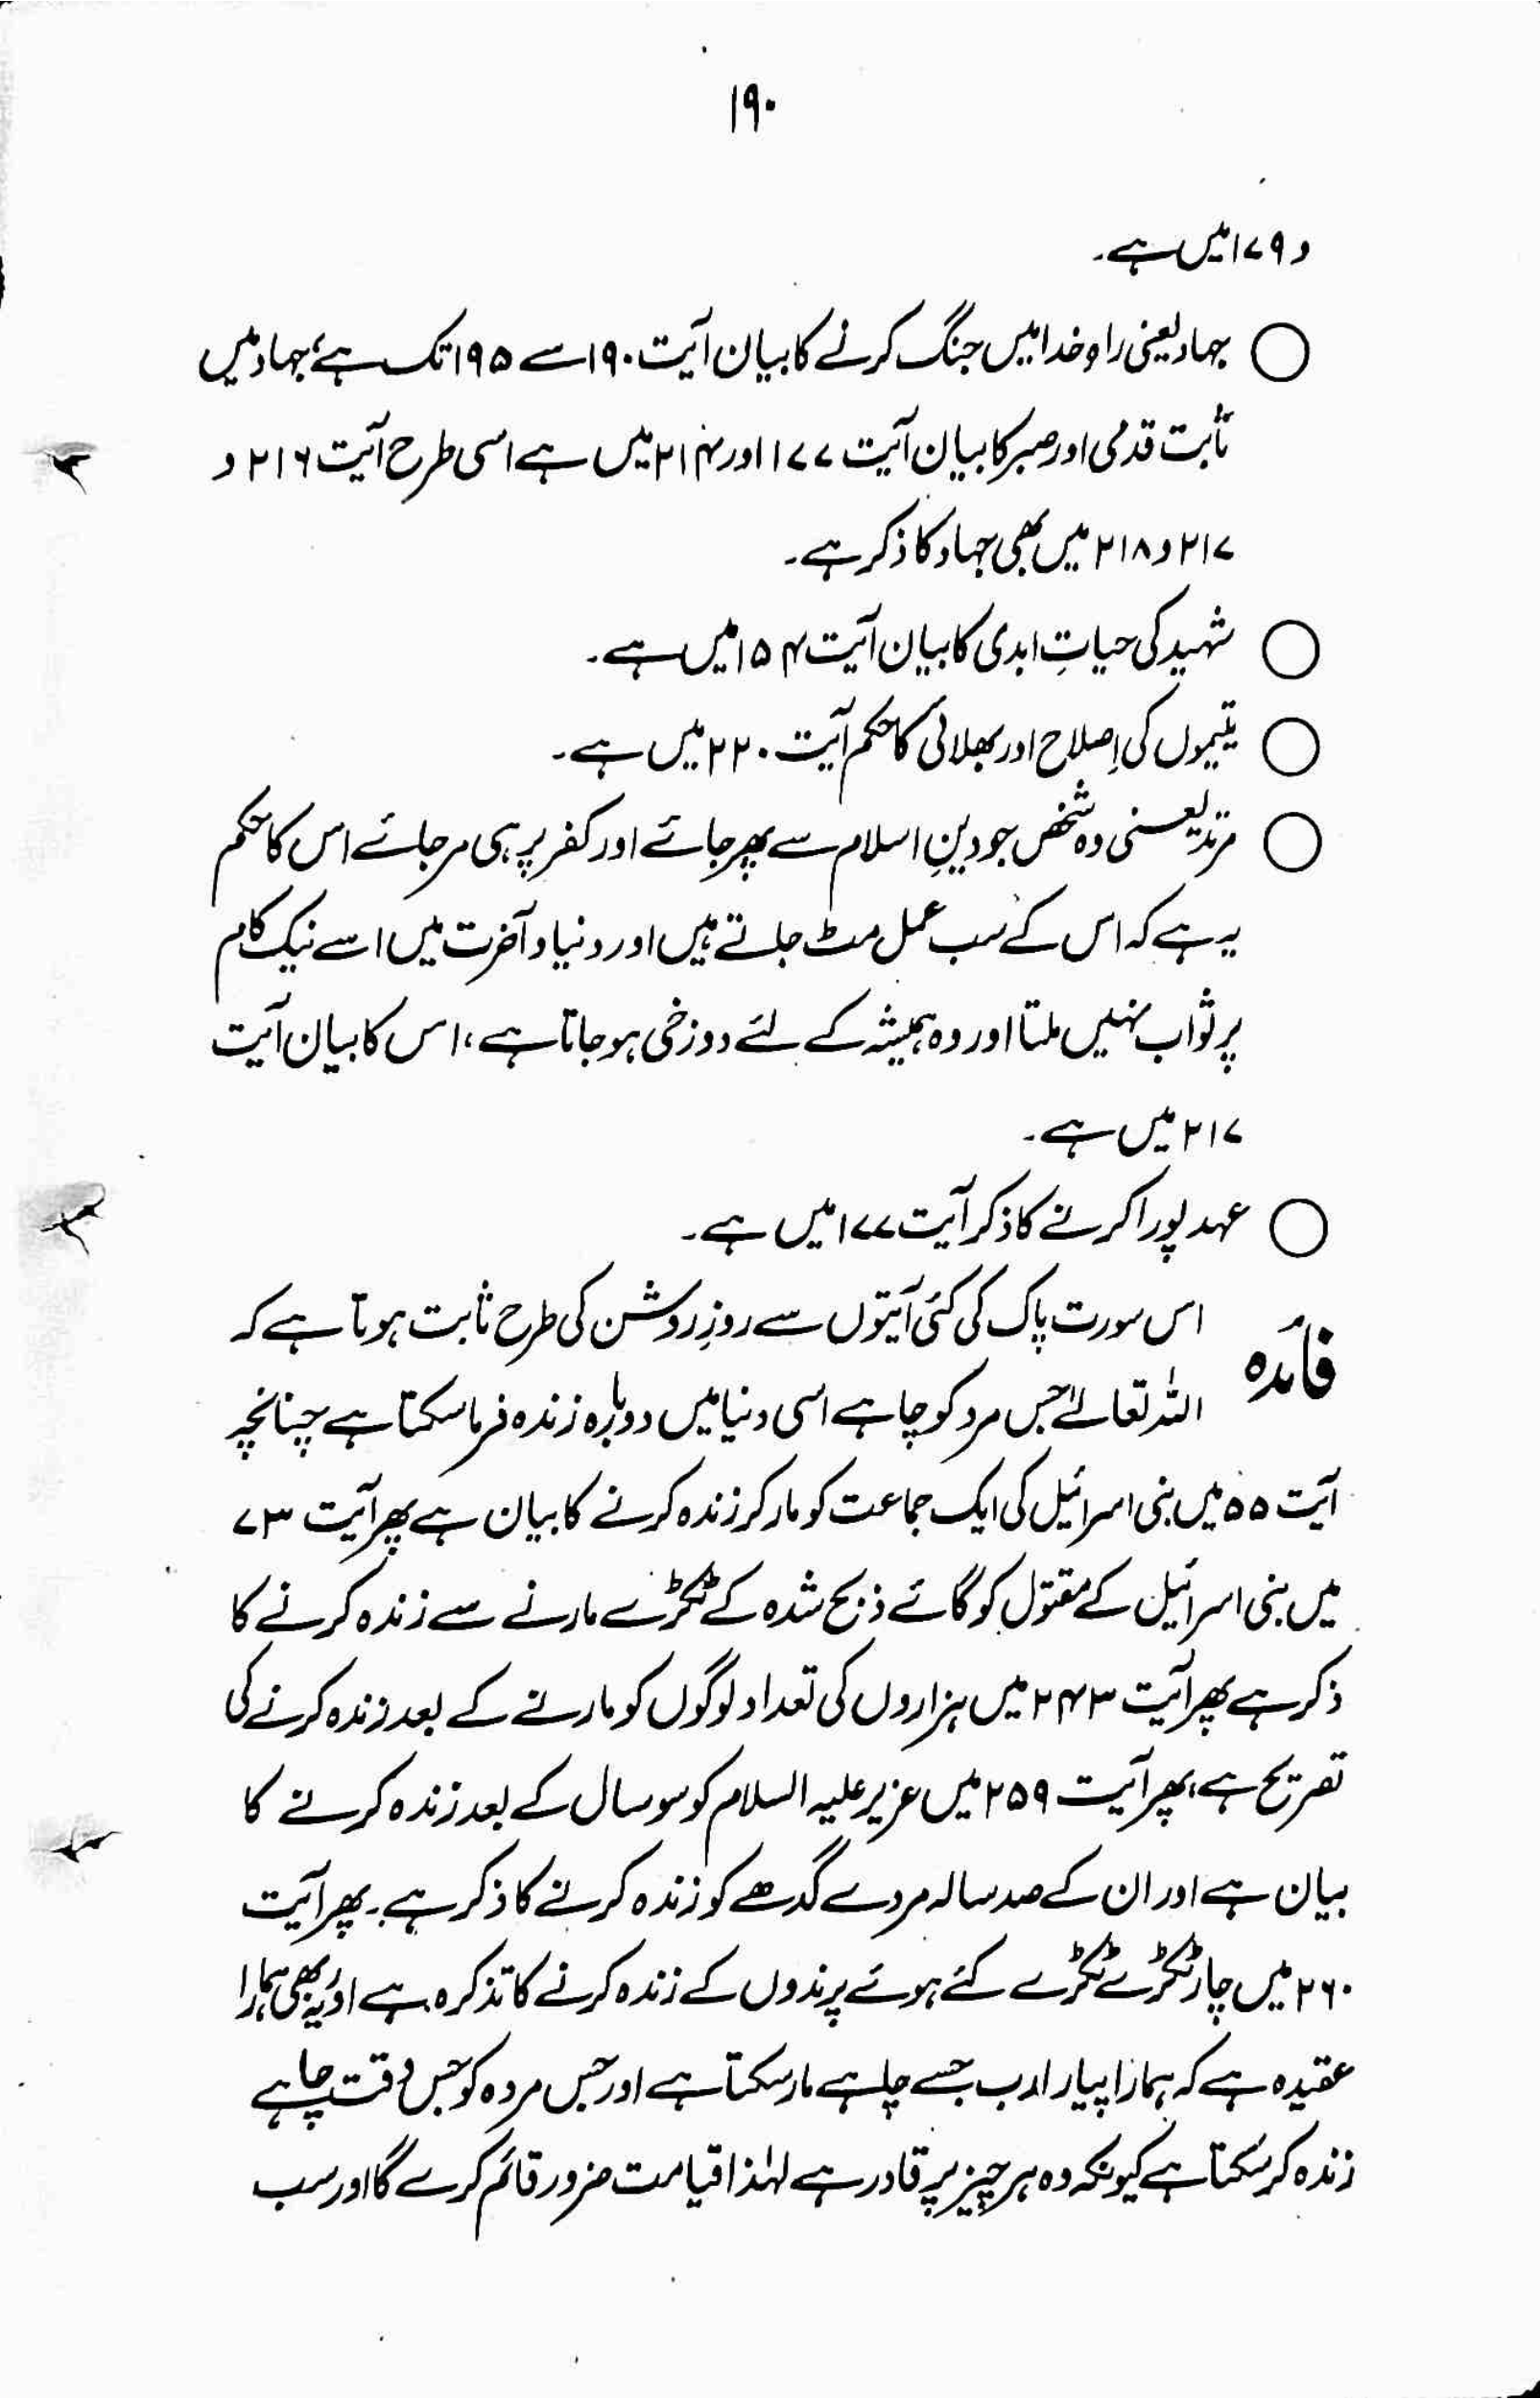 ۱۹۰
و ۱۷۹ میں ہے۔
جہاد یعنی راہِ خدا میں جنگ کرنے کا بیان آیت ۱۹۰ سے ۱۹۵ تک ہے، جہاد میں
ثابت قدمی اور صبر کا بیان آیت ۱۷۷ اور ۲۱۴ میں ہے اسی طرح آیت ۲۱۶ و
۲۱۷ و ۲۱۸ میں بھی جہاد کا ذکر ہے۔
شہید کی حیاتِ ابدی کا بیان آیت ۱۵۴ میں ہے۔
یتیموں کی اِصلاح اور بھلائی کا حکم آیت ۲۲۰ میں ہے۔
مرتد یعنی وہ شخص جو دینِ اسلام سے پھر جائے اور کفر پر ہی مر جائے اس کا حکم
یہ ہے کہ اس کے سب عمل مٹ جاتے ہیں اور دنیا و آخرت میں اسے نیک کام
پر ثواب نہیں ملتا اور وہ ہمیشہ کے لئے دوزخی ہو جاتا ہے، اس کا بیان آیت
۲۱۷ میں ہے۔
عہد پورا کرنے کا ذکر آیت ۱۷۷ میں ہے۔
فائدہ
اس سورت پاک کی کئی آیتوں سے روزِ روشن کی طرح ثابت ہوتا ہے کہ
اللہ تعالےٰ جس مرد کو چاہے اسی دنیا میں دوبارہ زندہ فرما سکتا ہے چنانچہ
آیت ۵۵ میں بنی اسرائیل کی ایک جماعت کو مار کر زندہ کرنے کا بیان ہے پھر آیت ۷۳
میں بنی اسرائیل کے مقتول کو گائے ذبح شدہ کے ٹکڑے مارنے سے زندہ کرنے کا
ذکر ہے پھر آیت ۲۴۳ میں ہزاروں کی تعداد لوگوں کو مارنے کے بعد زندہ کرنے کی
تصریح ہے، پھر آیت ۲۵۹ میں عزیر علیہ السلام کو سو سال کے بعد زندہ کرنے کا
بیان ہے اور ان کے صد سالہ مردے گدھے کو زندہ کرنے کا ذکر ہے۔ پھر آیت
۲۶۰ میں چار ٹکڑے ٹکڑے کئے ہوئے پرندوں کے زندہ کرنے کا تذکرہ ہے اور یہ بھی ہمارا
عقیدہ ہے کہ ہمارا پیارا رب جسے چاہے مار سکتا ہے اور جس مردہ کو جس وقت چاہے
زندہ کر سکتا ہے کیونکہ وہ ہر چیز پر قادر ہے لہٰذا قیامت ضرور قائم کرے گا اور سب